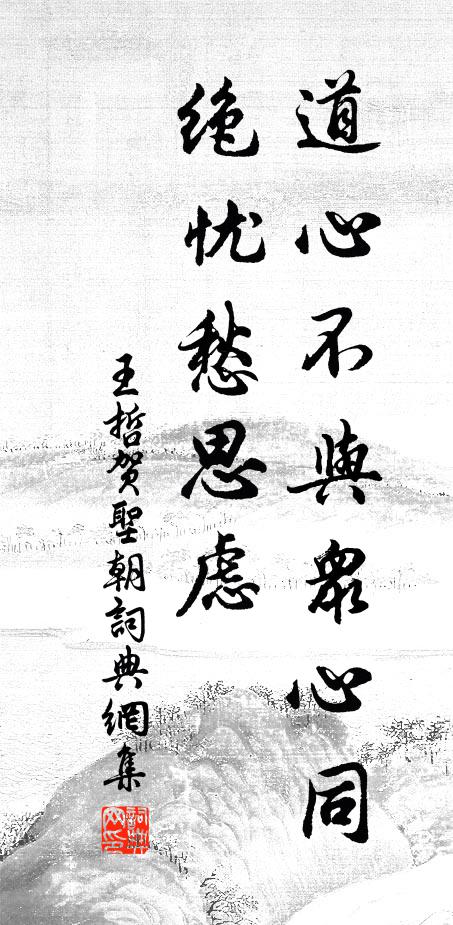 道心不與衆心同
絶忧愁思慮
王哲賀聖朝詞典網集